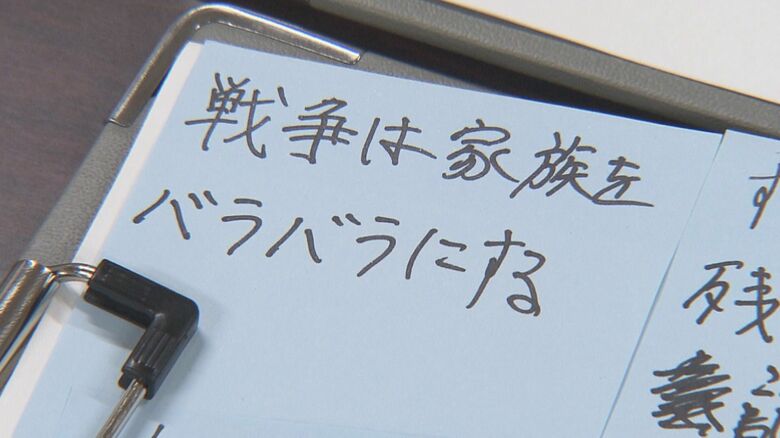 戦争は家族を
バラバラにする
す
残